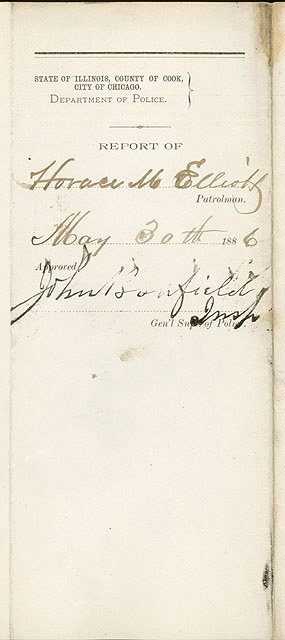 STATE OF ILLINOIS, COUNTY OF COOK,
CITY OF CHICAGO.
DEPARTMENT OF POLICE.
REPORT OF
Horace M Elliott
Patrolman.
May 30th 1886
Approved
John Bonfield
Insp
Gen'l Sup't of Police